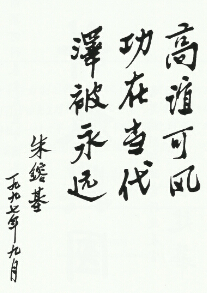 高谊可风
功在当代
泽被永远
朱镕基
一九九七年九月